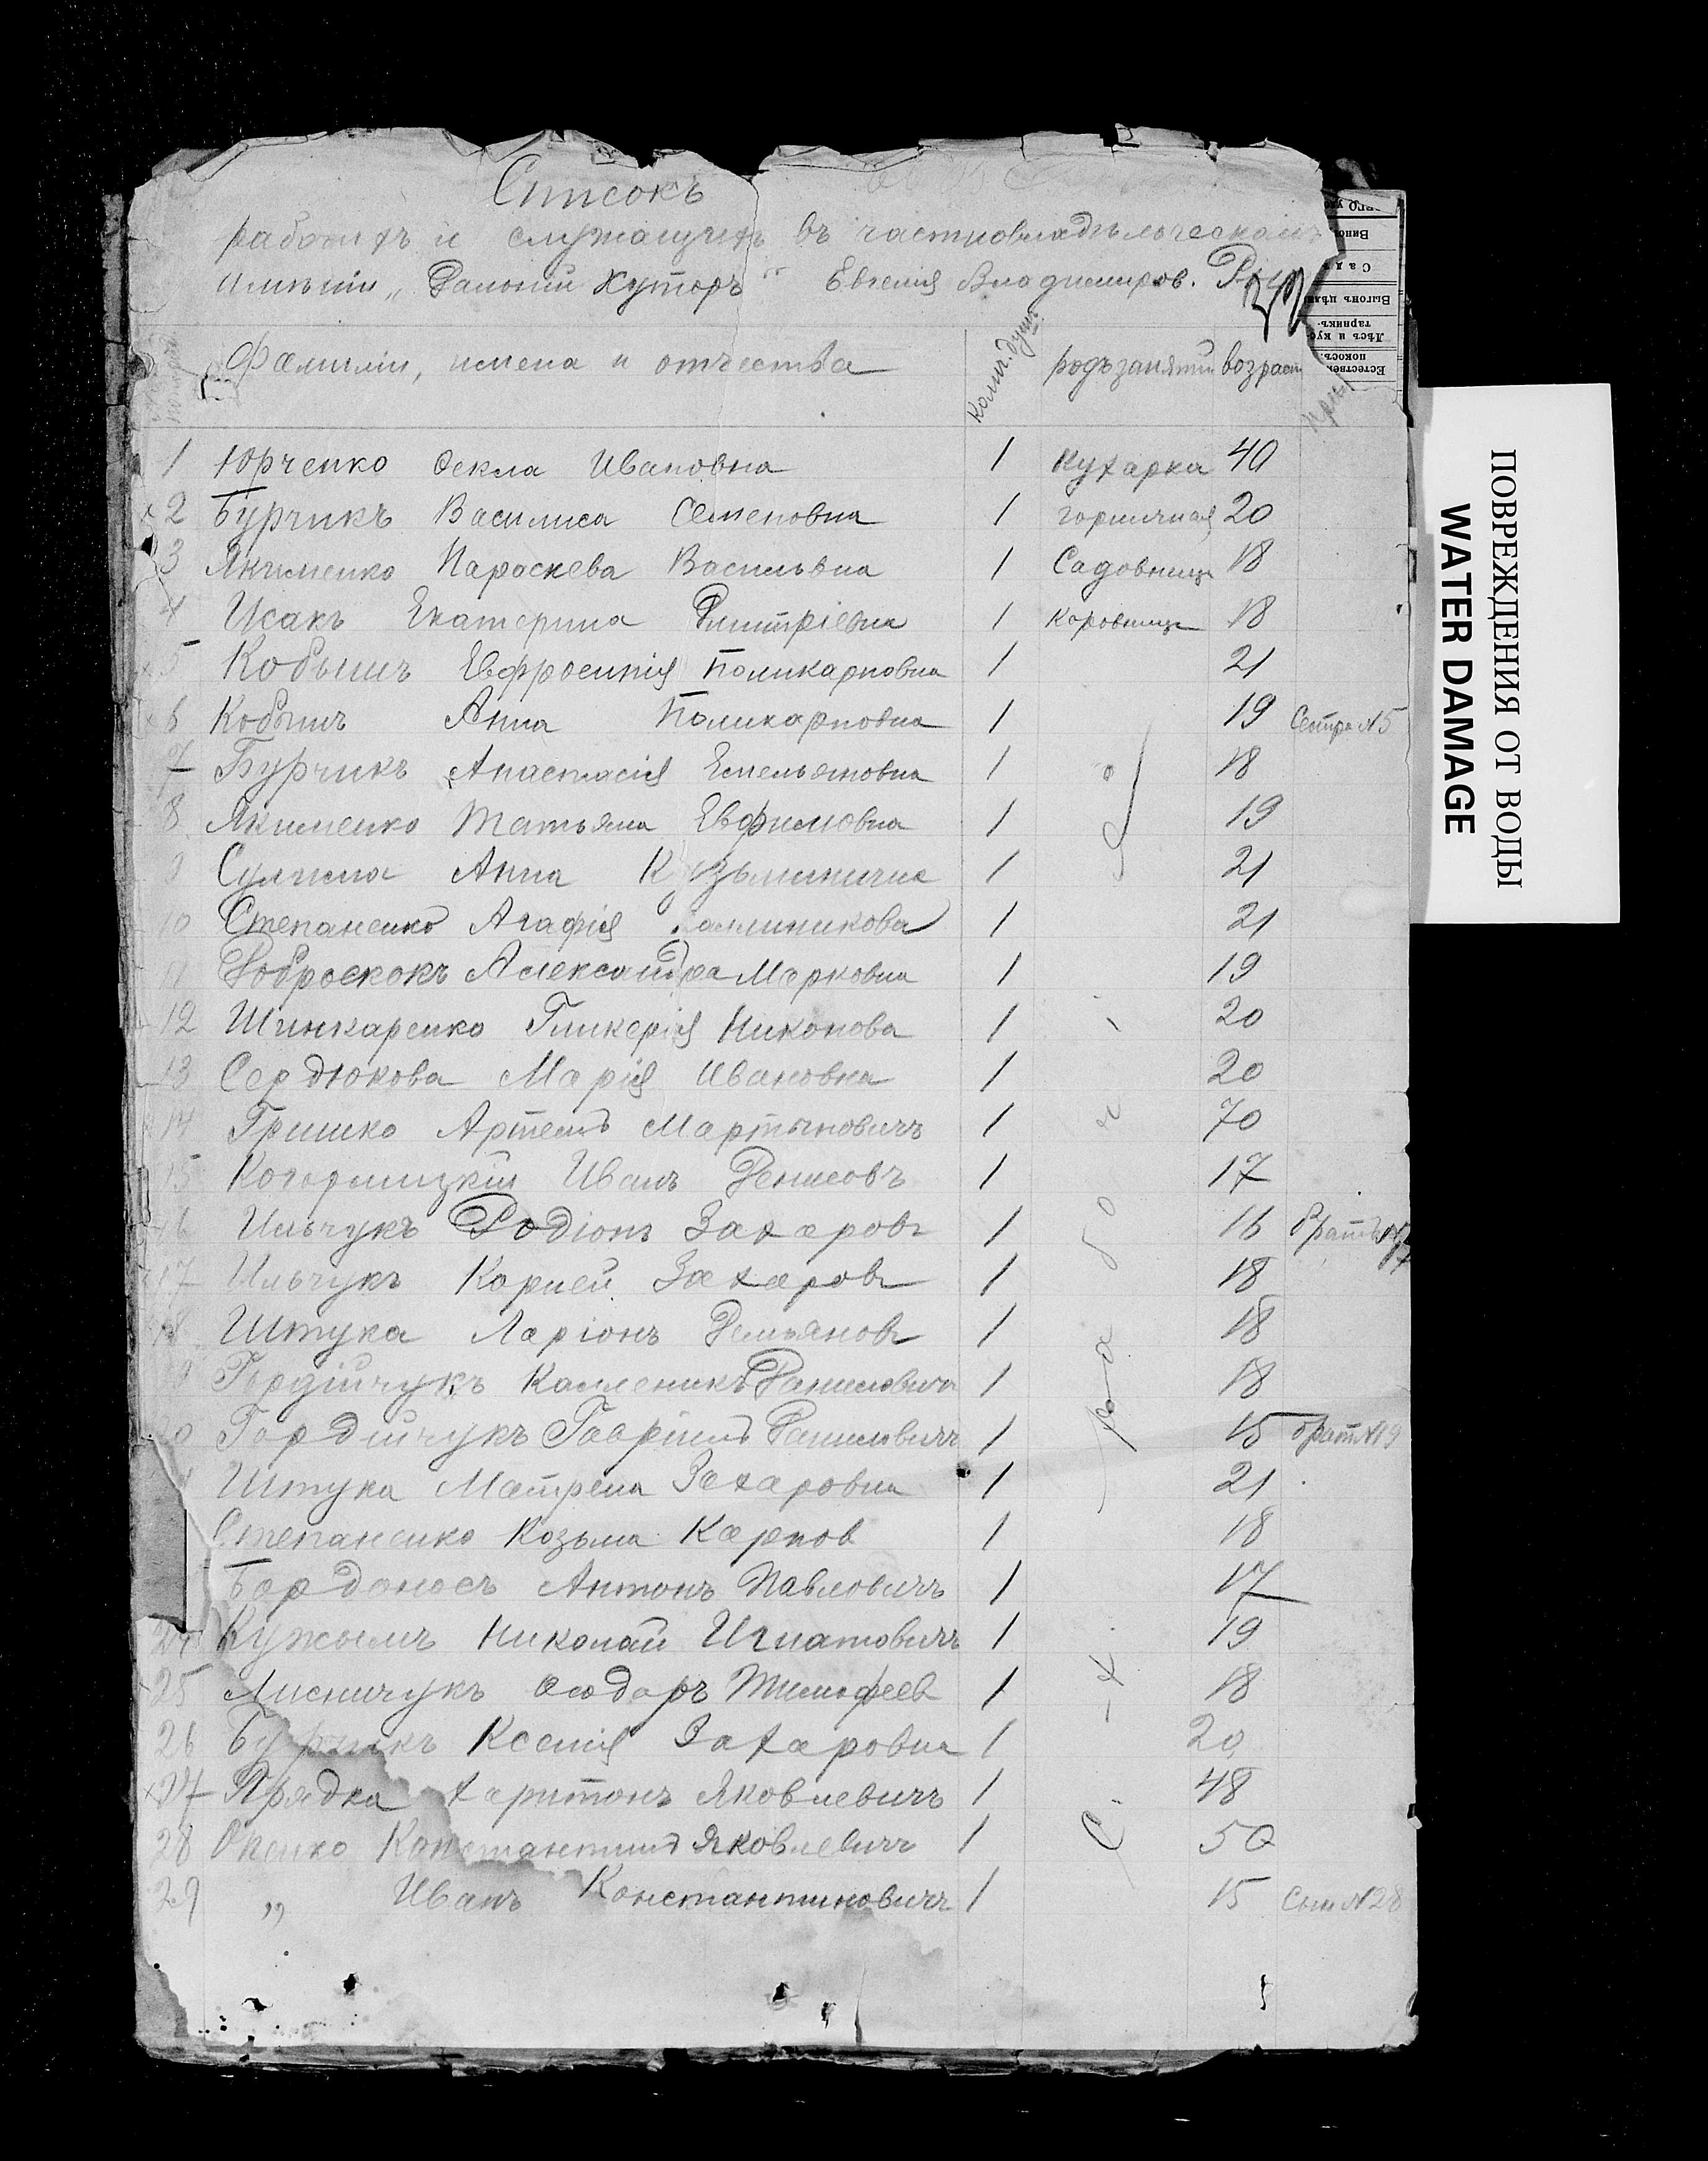 Списокъ
рабочихъ и служащихъ въ частновладѣльческомъ
имѣніи „Дальній Хуторъ“ Евгенія Владиміров.
Фамиліи, имена и отчества Колич. душъ родъ занятій возраст Прим
1 Юрченко Ѳекла Ивановна 1 Кухарка 40
2 Бурчикъ Василиса Семеновна 1 горничная 20
3 Якименко Параскева Васильвна 1 Садовница 18
4 Исакъ Екатерина Дмитріевна 1 Коровница 18
5 Кобышъ Евфросинія Поликарповна 1 21
6 Кобышъ Анна Поликарповна 1 19 Сестра №5
7 Бурчикъ Анастасія Емельяновна 1 18
8 Якименко Татьяна Евфимовна 1 19
9 Сулима Анна Кузьминична 1 21
10 Степаненко Агафія Каллиникова 1 21
11 Доброскокъ Александра Марковна 1 19
12 Шинкаренко Гликерія Никонова 1 20
13 Сердюкова Марія Ивановна 1 20
14 Гришко Артемъ Мартыновичъ 1 70
15 Иванъ Денисовъ 1 17
16 Ильчукъ Родіонъ Захаровъ 1 16 братъ №17
17 Ильчукъ Корней Захаровъ 1 18
18 Штука Ларіонъ Демьяновъ 1 18
19 Гордійчукъ Каленикъ Даниловичъ 1 18
20 Гордійчукъ Гавріилъ Даниловичъ 1 15 брат №19
Штука Матрена Захаровна 1 21
Степаненко Козьма Карпов 1 18
Борданосъ Антонъ Павловичъ 1 17
24 Николай Игнатовичъ 1 19
25 Лисничукъ Ѳедоръ Тимофеев 1 18
26 Бурчикъ Ксенія Захаровна 1 20
27 Прядка Харитонъ Яковлевичъ 1 48
28 Константинъ Яковлевичъ 1 50
29 „ Иванъ Константиновичъ 1 15 Сынъ №28
С.-х. рабочіе
Вино
Садъ
Выгонъ цѣли
Лѣсъ и кус-
тарникъ.
Естествен
покосъ.
ПОВРЕЖДЕНИЯ ОТ ВОДЫ
WATER DAMAGE